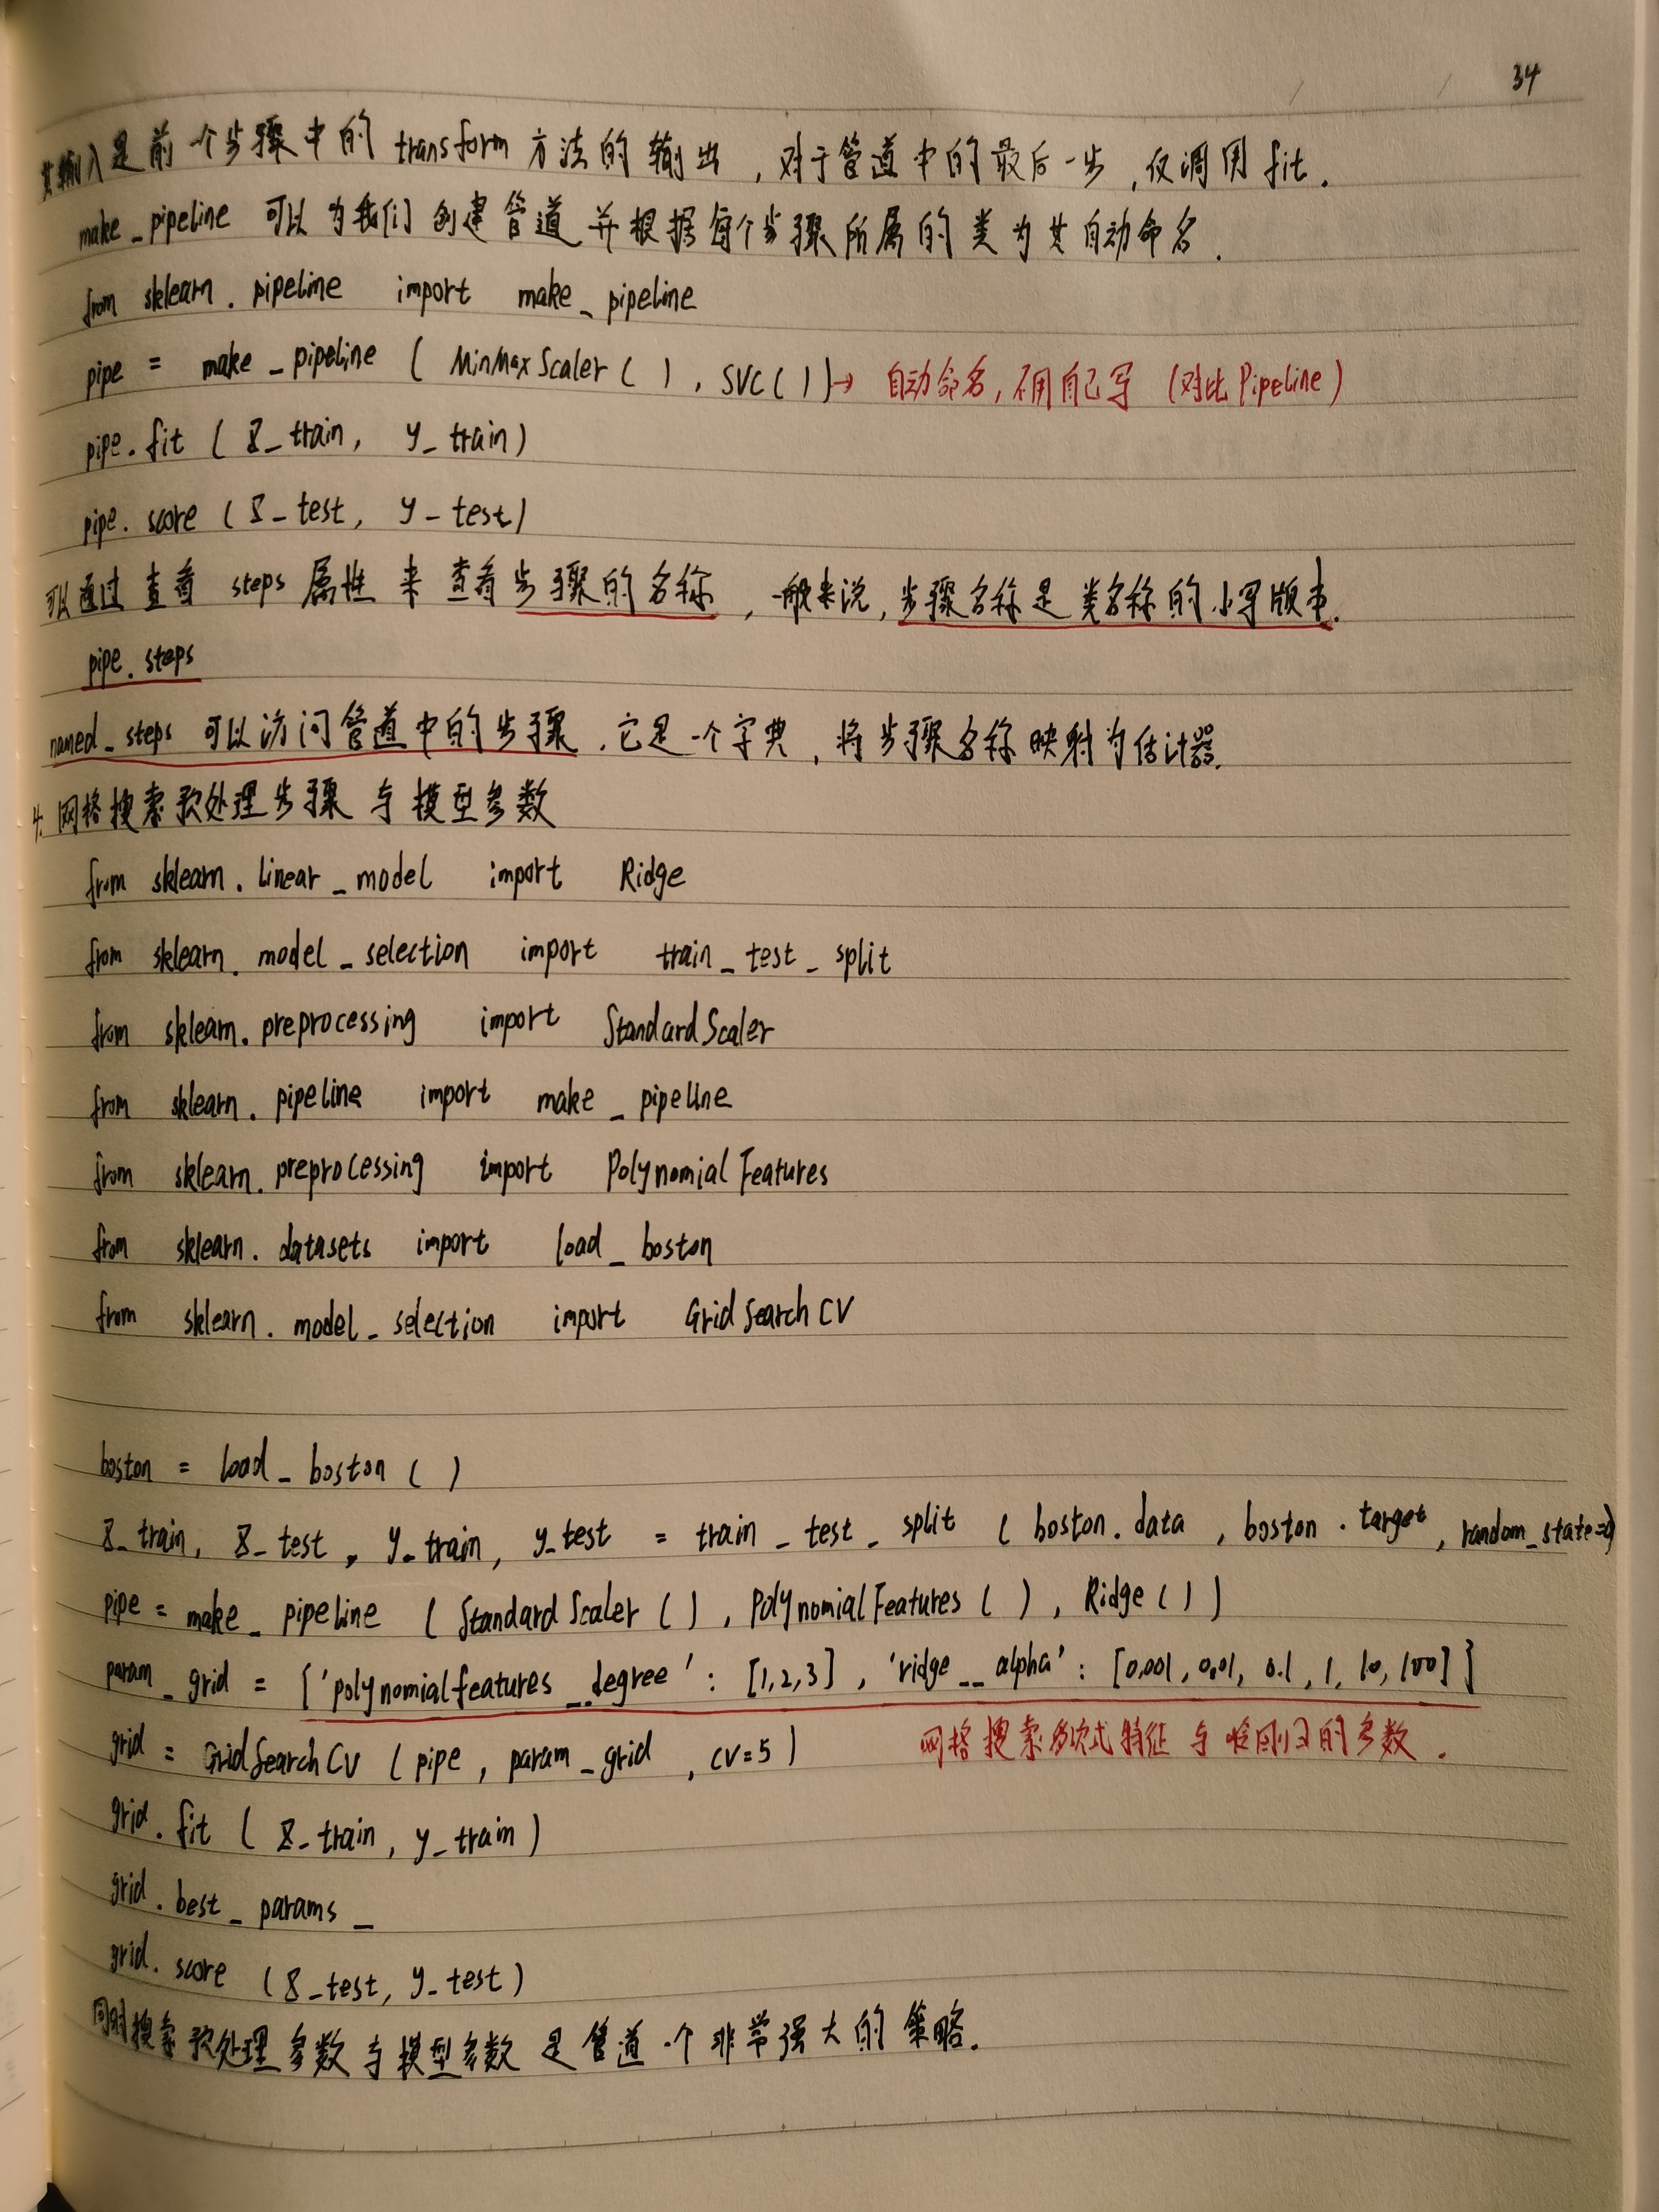 34
其输入是前一个步骤中的 transform 方法的输出，对于管道中的最后一步，仅调用 fit.
make_pipeline 可以为我们创建管道并根据每个步骤所属的类为其自动命名.
from sklearn.pipeline import make_pipeline
pipe = make_pipeline ( MinMaxScaler ( ) , SVC ( ) ) → 自动命名, 不用自己写 (对比 Pipeline)
pipe.fit ( X_train, y_train )
pipe.score ( X_test, y_test )
可以通过查看 steps 属性来查看步骤的名称，一般来说, 步骤名称是类名称的小写版本.
pipe.steps
named_steps 可以访问管道中的步骤. 它是一个字典，将步骤名称映射为估计器.
4. 网格搜索预处理步骤与模型参数
from sklearn.linear_model import Ridge
from sklearn.model_selection import train_test_split
from sklearn.preprocessing import StandardScaler
from sklearn.pipeline import make_pipeline
from sklearn.preprocessing import PolynomialFeatures
from sklearn.datasets import load_boston
from sklearn.model_selection import GridSearchCV
boston = load_boston ( )
X_train, X_test, y_train, y_test = train_test_split ( boston.data , boston.target , random_state=0)
pipe = make_pipeline ( StandardScaler ( ) , PolynomialFeatures ( ) , Ridge ( ) )
param_grid = {'polynomialfeatures__degree' : [1,2,3] , 'ridge__alpha' : [0.001 , 0.01, 0.1 , 1, 10, 100] }
grid = GridSearchCV ( pipe , param_grid , cv=5 ) 网格搜索多项式特征与岭回归的参数.
grid.fit ( X_train, y_train )
grid.best_params_
grid.score ( X_test, y_test )
同时搜索预处理参数与模型参数是管道一个非常强大的策略.